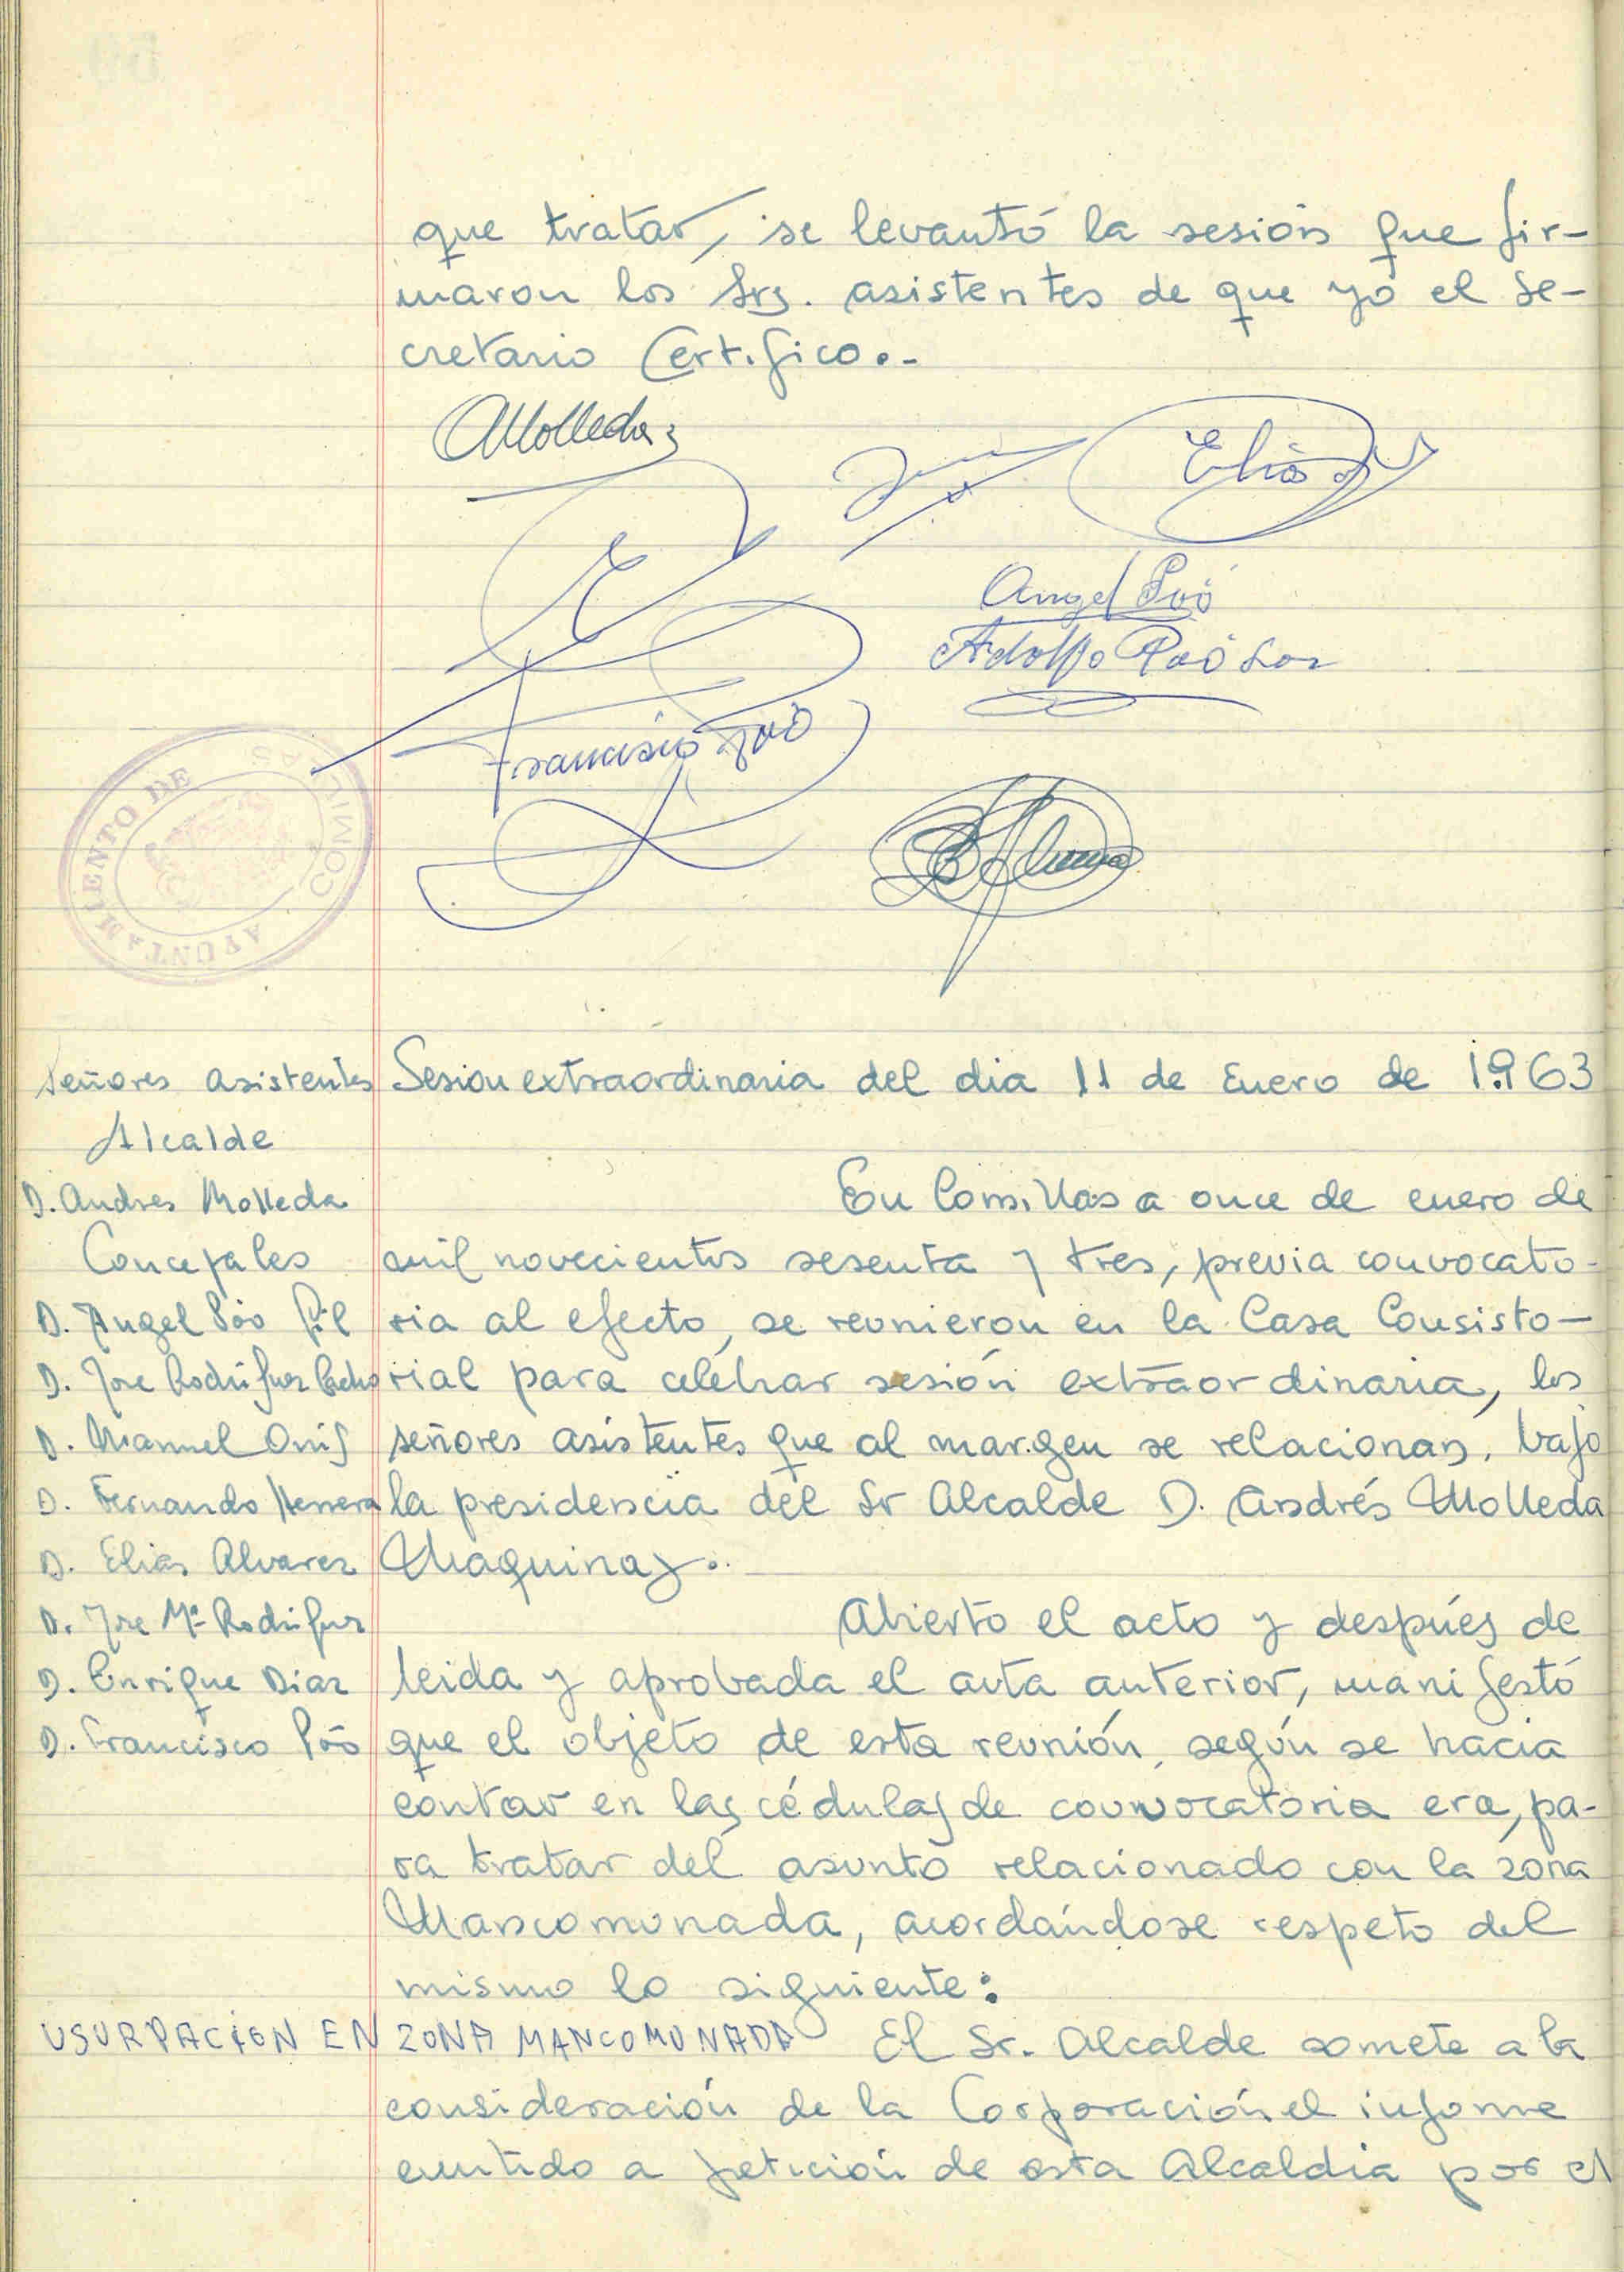 que tratar, se levantó la sesión que fir-
maron los Srs. asistentes de que yo el Se-
cretario Certifico.-
AMolleda
Elias
Angel Poó
Adolfo Poó
Francisco Poó
AYUNTAMIENTO DE COMILLAS
Señores asistentes
Alcalde
D. Andres Molleda
Concejales
D. Angel Póo Gil
D. Jose Rodriguez Cacho
D. Manuel
D. Fernando Herrera
D. Elias Alvarez
D. Jose Mª Rodriguez
D. Enrique Diaz
D. Francisco Póo
Sesion extraordinaria del dia 11 de Enero de 1.963
En Comillas a once de enero de
mil novecientos sesenta y tres, previa convocato-
ria al efecto, se reunieron en la Casa Consisto-
rial para celebrar sesión extraordinaria, los
señores asistentes que al margen se relacionan, bajo
la presidencia del Sr Alcalde D. Andrés Molleda
Maquinay.-
Abierto el acto y después de
leida y aprobada el acta anterior, manifestó
que el objeto de esta reunión, según se hacia
contar en las cédulas de convocatoria era, pa-
ra tratar del asunto relacionado con la zona
Mancomunada, acordándose respeto del
mismo lo siguiente:
USURPACION EN ZONA MANCOMUNADA El Sr. Alcalde somete a la
consideración de la Corporación el informe
emitido a petición de esta Alcaldia por el